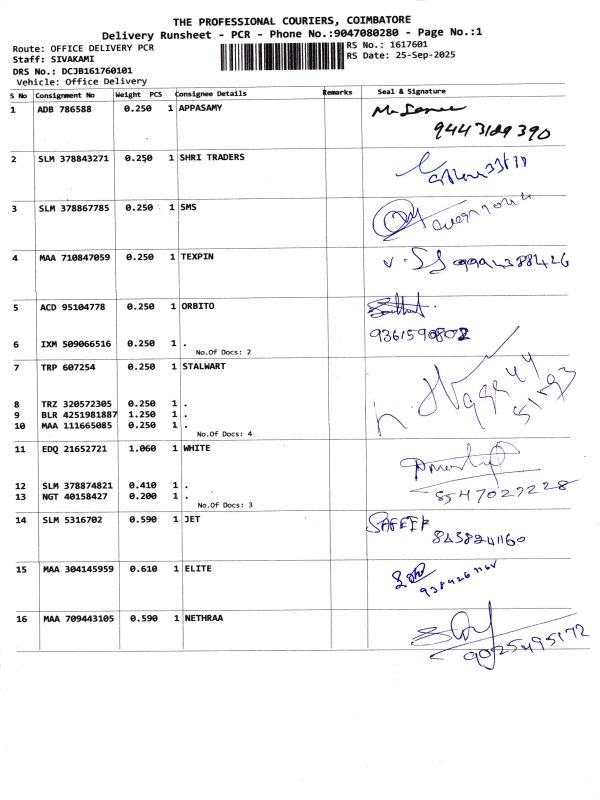 THE PROFESSIONAL COURIERS, COIMBATORE
Delivery Runsheet - PCR - Phone No.:9047080280 - Page No.:1
Route: OFFICE DELIVERY PCR RS No.: 1617601
Staff: SIVAKAMI RS Date: 25-Sep-2025
DRS No.: DCJB161760101
Vehicle: Office Delivery
S No Consignment No Weight PCS Consignee Details Remarks Seal & Signature
1 ADB 786588 0.250 1 APPASAMY
9443129390
2 SLM 378843271 0.250 1 SHRI TRADERS
3 SLM 378867785 0.250 1 SMS
4 MAA 710847059 0.250 1 TEXPIN 9994388426
5 ACD 95104778 0.250 1 ORBITO
9361590802
6 IXM 509066516 0.250 1 .
No.Of Docs: 2
7 TRP 607254 0.250 1 STALWART
8 TRZ 320572305 0.250 1 .
9 BLR 4251981887 1.250 1 .
10 MAA 111665085 0.250 1 .
No.Of Docs: 4
11 EDQ 21652721 1.060 1 WHITE
12 SLM 378874821 0.410 1 .
8547027228
13 NGT 40158427 0.200 1 .
No.Of Docs: 3
14 SLM 5316702 0.590 1 JET SAFEER
8438241160
15 MAA 304145959 0.610 1 ELITE
16 MAA 709443105 0.590 1 NETHRAA
9025495172